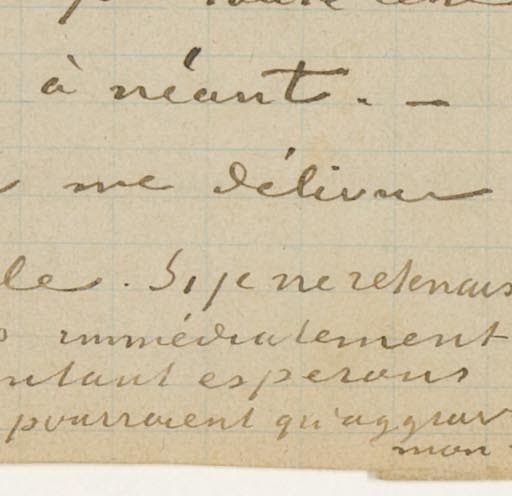 à néant. —
me délivrer
le. Si je ne retenais
immédiatement
ntant esperons
pourraient qu'aggrav
mon